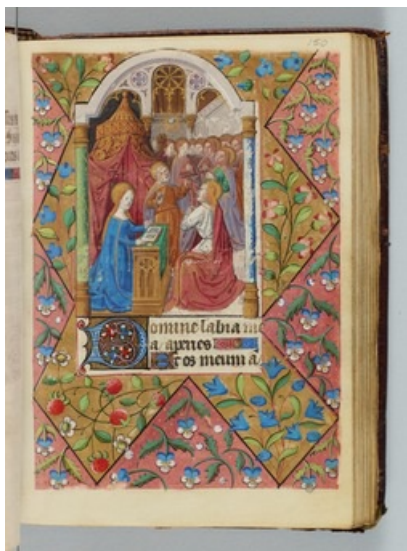 150
Domine labia m
a aperies
Et os meum a